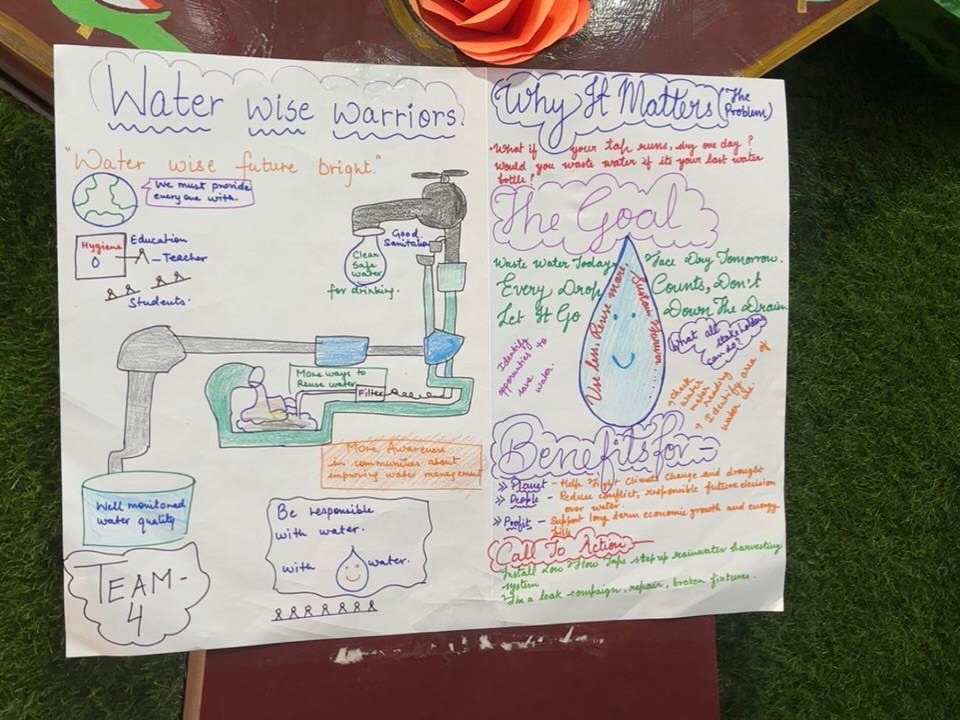 Water wise warriors
"Water wise future bright."
We must provide
every one with.
Hygiene
Education
Teacher
Students.
Good
Sanitation
Clean
Safe
water
for drinking.
More ways to
Reuse water
Filter
More Awareness
in communities about
improving water management
Well monitored
water quality
Be responsible
with water.
with water.
TEAM-
4
Why It Matters (The
Problem)
What if your tap runs, dry one day?
Would you waste water if its your last water
bottle?
The Goal
Waste Water Today, Face Dry Tomorrow.
Every Drop Counts, Don't
Let It Go Down The Drain.
Use less, Reuse more
Sustain
Identify
opportunities to
save water.
What all
stakeholders
can do?
→ Check
water
meter
reading
→ Identify area of
water use.
Benefits for-
>> Planet - Help Fight Climate Change and drought
>> People - Reduce conflict, responsible future decision
over water.
>> Profit - Support long term economic growth and energy
bills
Call To Action-
Install Low Flow Taps step up rainwater harvesting
system
Fix a leak campaign, repair, broken fixtures.